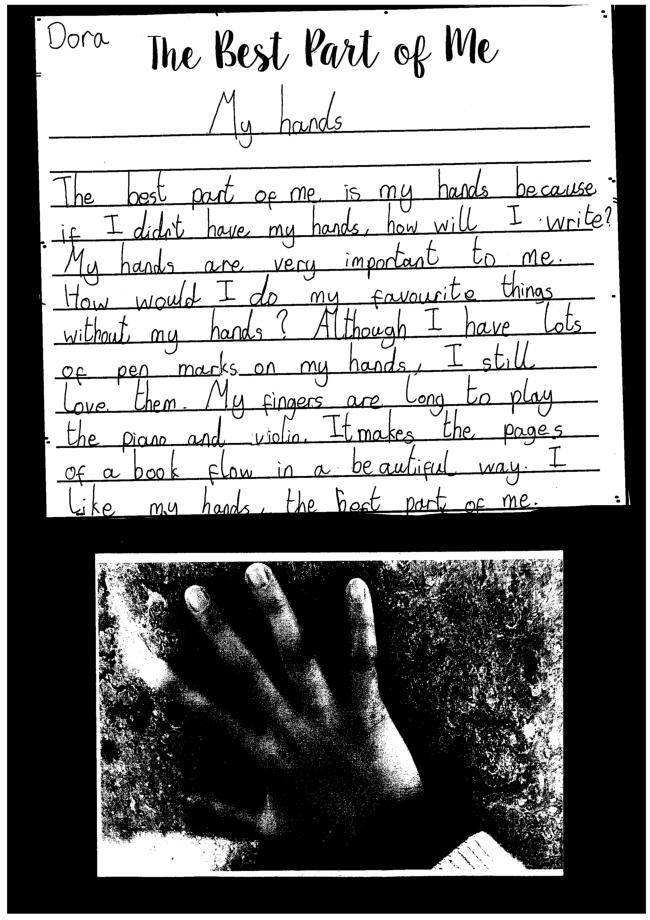 Dora
The Best Part of Me
My hands
The best part of me is my hands because
if I didn't have my hands, how will I write?
My hands are very important to me.
How would I do my favourite things
without my hands? Although I have lots
of pen marks on my hands, I still
love them. My fingers are long to play
the piano and violin. It makes the pages
of a book flow in a beautiful way. I
like my hands, the best part of me.